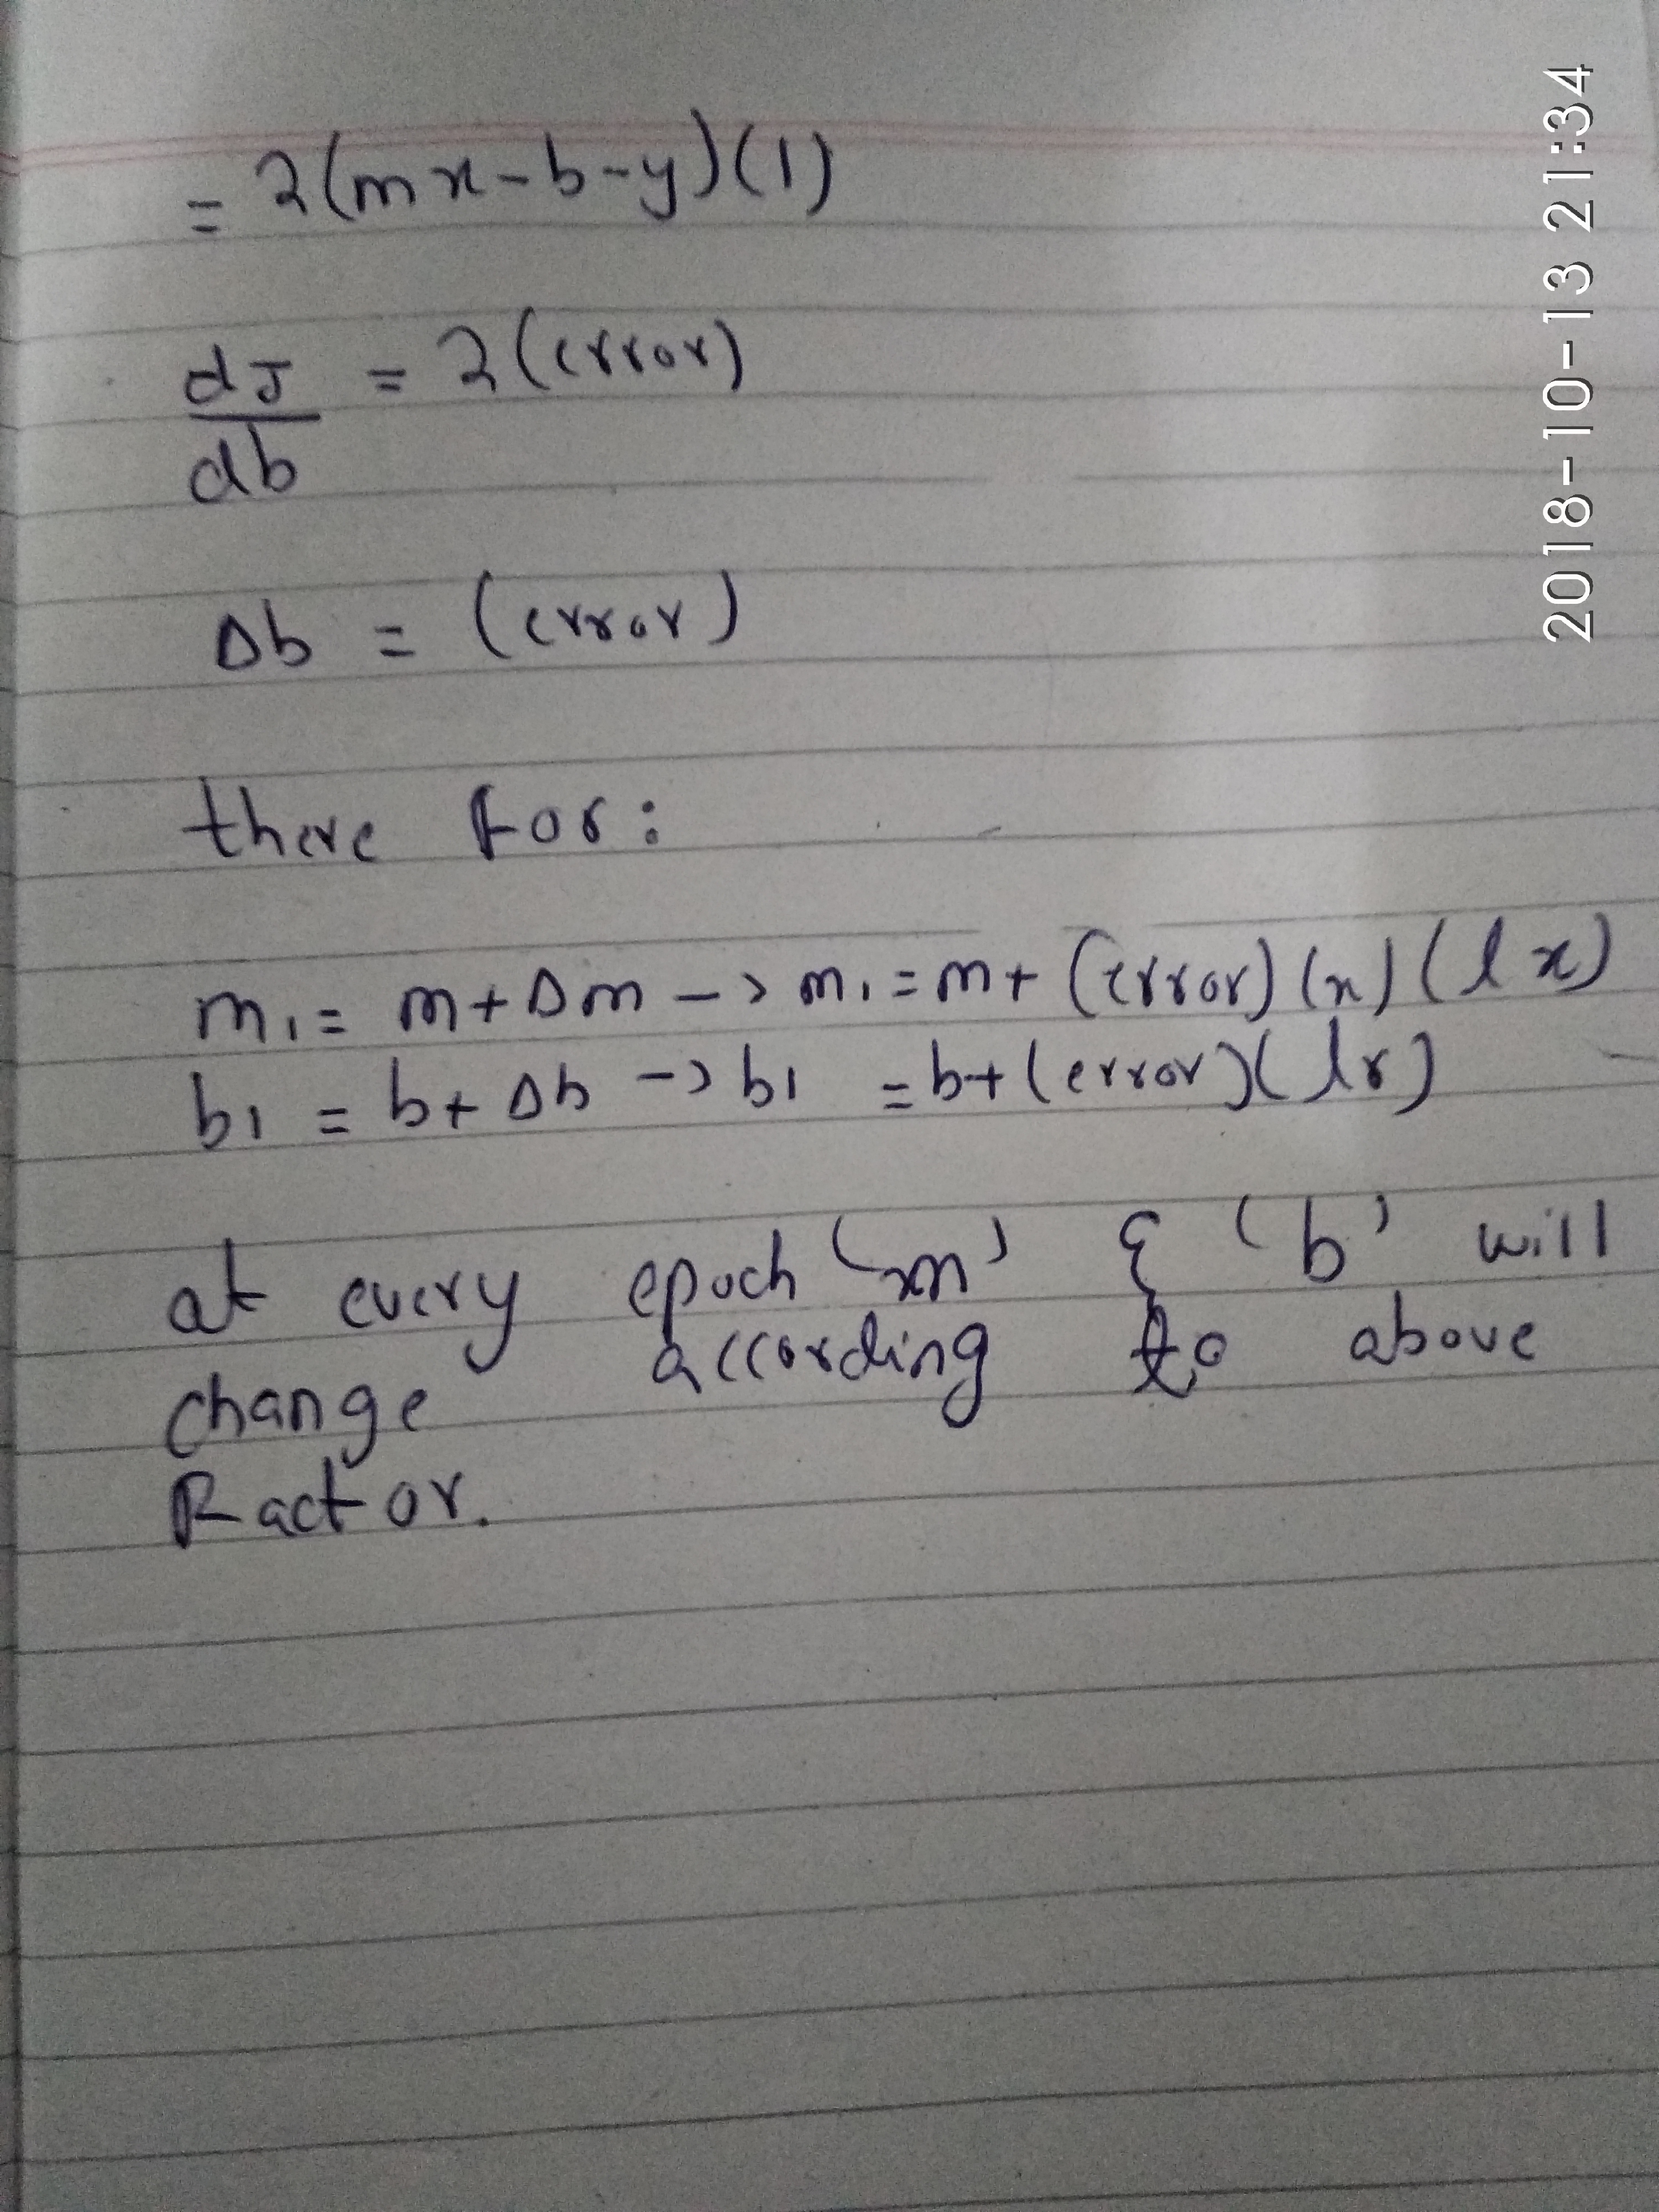 = 2(mx-b-y)(1)
dJ/db = 2(error)
Δb = (error)
there for:
m1 = m+Δm -> m1 = m+ (error)(x)(lr)
b1 = b+Δb -> b1 = b+(error)(lr)
at every epoch 'm' & 'b' will
change according to above
Factor.
2018-10-13 21:34